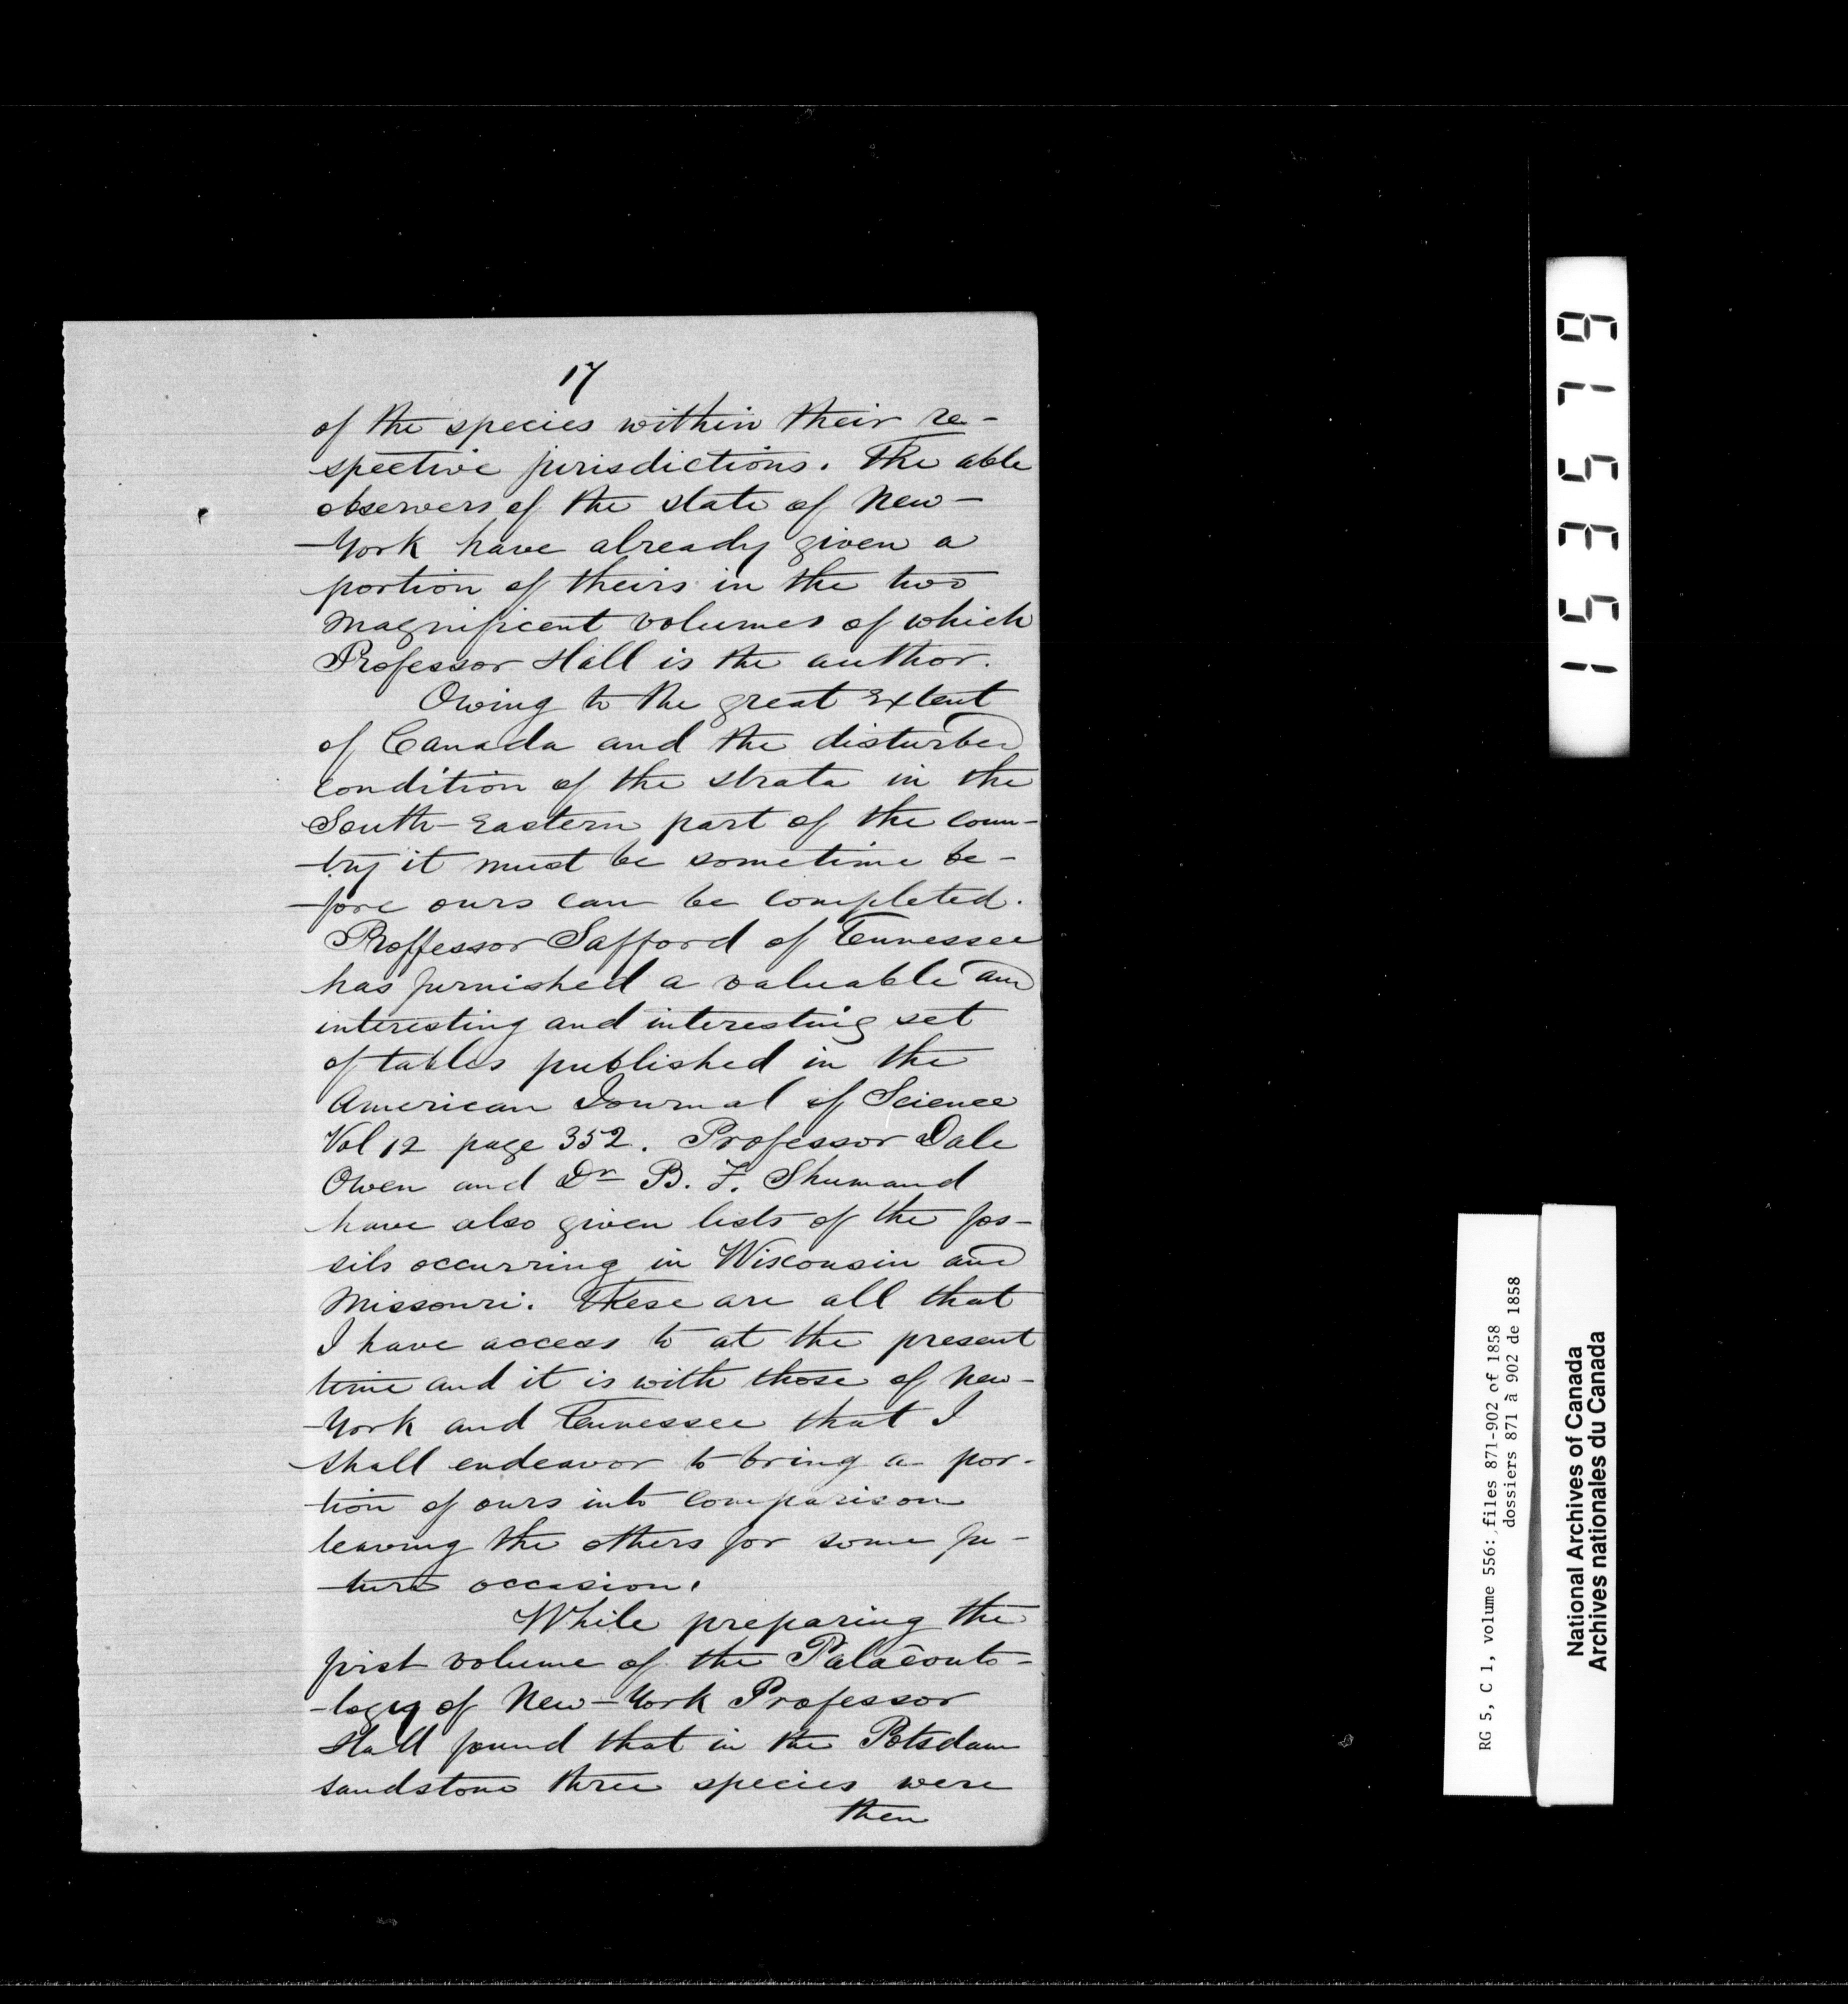 17
of the species within their re-
spective jurisdictions. The able
observers of the state of New-
-York have already given a
portion of theirs in the two
magnificent volumes of which
Professor Hall is the author.
Owing to the great extent
of Canada and the disturbed
condition of the strata in the
South-Eastern part of the coun-
-try it must be sometime be-
-fore ours can be completed.
Proffessor Safford of Tennessee
has furnished a valuable and
interesting and interesting set
of tables published in the
American Journal of Science
Vol 12 page 352. Professor Dale
Owen and Dr B. F. Shumand
have also given lists of the fos-
sils occurring in Wisconsin and
Missouri. These are all that
I have access to at the present
time and it is with those of New-
-York and Tennessee that I
shall endeavor to bring a por-
-tion of ours into comparison
leaving the others for some fu-
-ture occasion.
While preparing the
first volume of the Palaeonto-
-logy of New-York Professor
Hall found that in the Potsdam
sandstone three species were
then
153579
RG 5, C 1, volume 556: files 871-902 of 1858
dossiers 871 à 902 de 1858
National Archives of Canada
Archives nationales du Canada